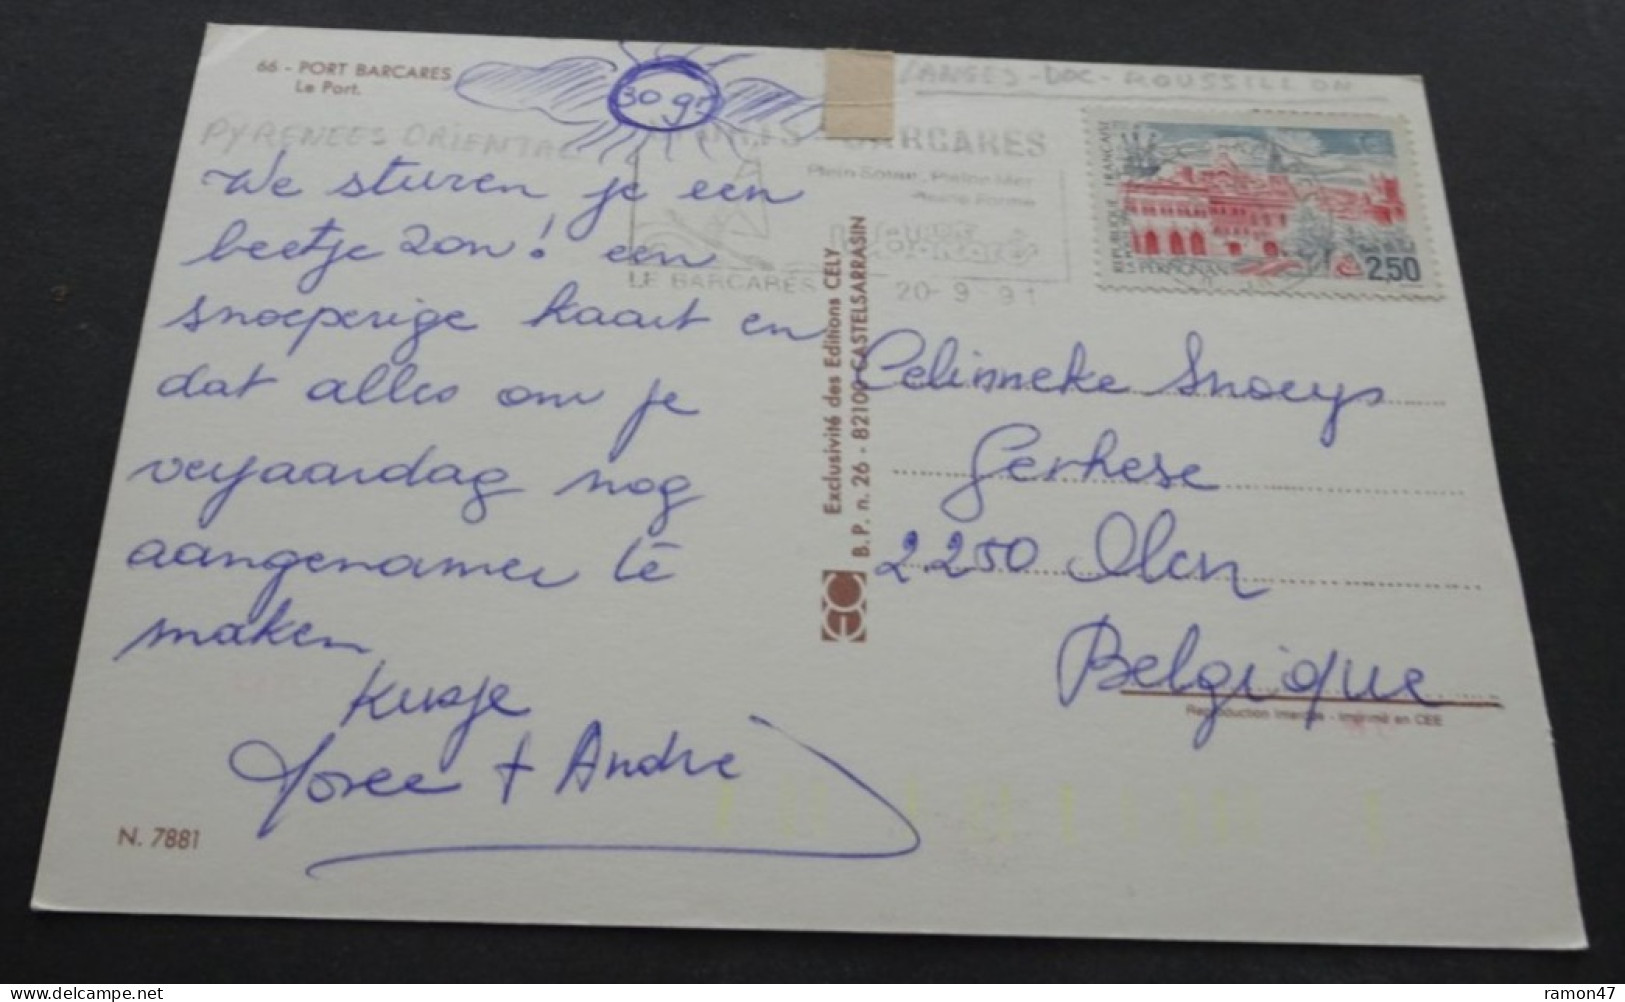 66 - PORT BARCARES
Le Port.
30 gr
LANGES DOC - ROUSSILLON
PYRENEES ORIENTAL
BARCARES
Plein Soleil, Pleine Mer
Pleine Forme
LE BARCARES
20-9-91
REPUBLIQUE FRANÇAISE
PERPIGNAN
2,50
We sturen je een
beetje zon! een
snoeperige kaart en
dat alles om je
verjaardag nog
aangenamer te
maken
Kusje
Josee + André
N. 7881
Exclusivité des Editions CELY
B.P. n. 26 - 82100 CASTELSARRASIN
Celinneke Snoeys
Gerheze
2250 Olen
Belgique
Reproduction interdite - Imprimé en CEE
ramon47